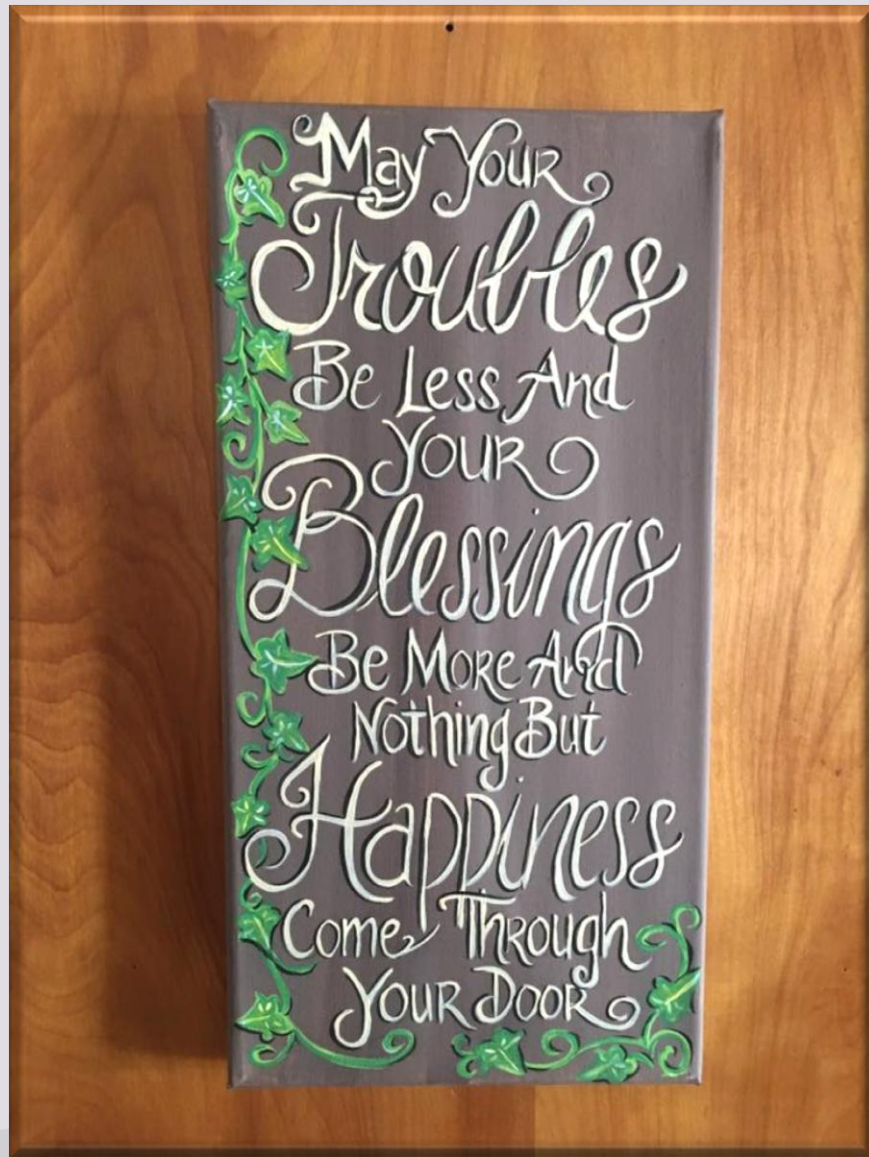 May Your
Troubles
Be Less And
Your
Blessings
Be More And
Nothing But
Happiness
Come Through
Your Door